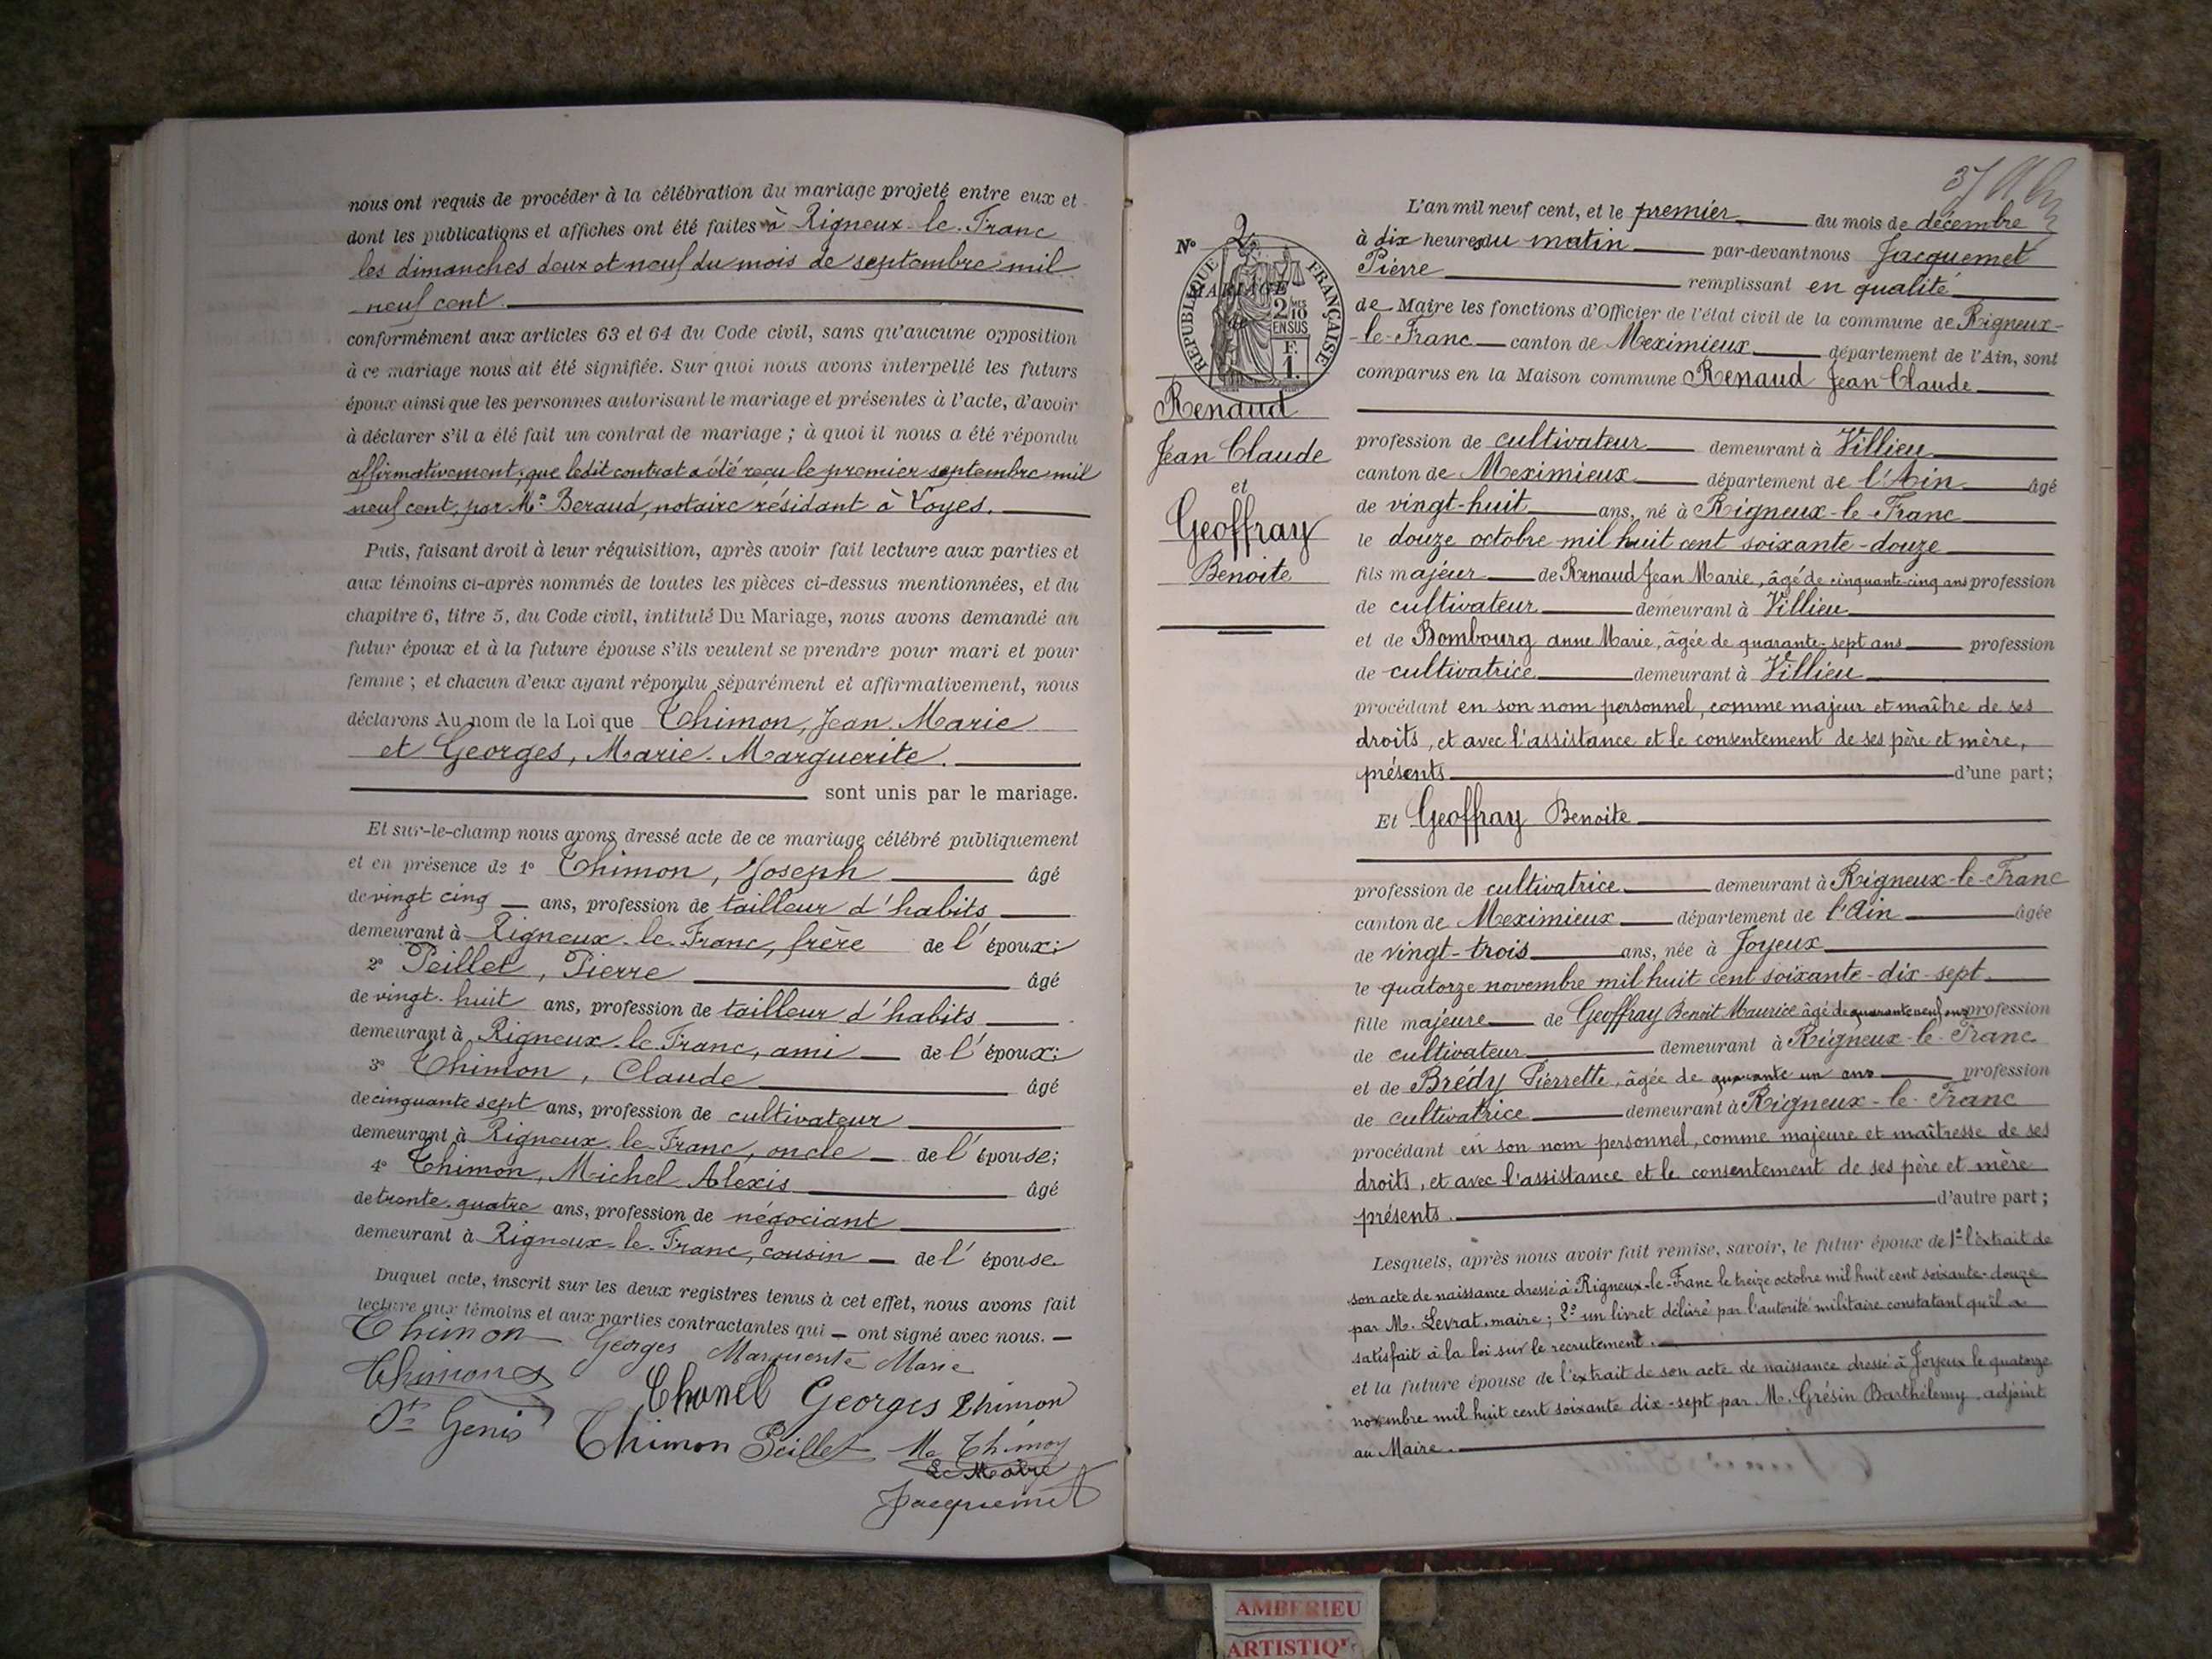 nous ont requis de procéder à la célébration du mariage projeté entre eux et
dont les publications et affiches ont été faites à Rigneux-le-Franc
les dimanches deux et neuf du mois de septembre mil
neuf cent.
conformément aux articles 63 et 64 du Code civil, sans qu'aucune opposition
à ce mariage nous ait été signifiée. Sur quoi nous avons interpellé les futurs
époux ainsi que les personnes autorisant le mariage et présentes à l'acte, d'avoir
à déclarer s'il a été fait un contrat de mariage ; à quoi il nous a été répondu
affirmativement, que ledit contrat a été reçu le premier septembre mil
neuf cent, par Me Beraud, notaire résidant à Loyes.
Puis, faisant droit à leur réquisition, après avoir fait lecture aux parties et
aux témoins ci-après nommés de toutes les pièces ci-dessus mentionnées, et du
chapitre 6, titre 5, du Code civil, intitulé Du Mariage, nous avons demandé au
futur époux et à la future épouse s'ils veulent se prendre pour mari et pour
femme ; et chacun d'eux ayant répondu séparément et affirmativement, nous
déclarons Au nom de la Loi que Thimon, Jean Marie
et Georges, Marie-Marguerite.
sont unis par le mariage.
Et sur-le-champ nous avons dressé acte de ce mariage célébré publiquement
et en présence de 1° Thimon, Joseph âgé
de vingt cinq ans, profession de tailleur d'habits
demeurant à Rigneux-le-Franc, frère de l'époux;
2° Peillet, Pierre âgé
de vingt-huit ans, profession de tailleur d'habits
demeurant à Rigneux-le-Franc, ami de l'époux;
3° Thimon, Claude âgé
de cinquante sept ans, profession de cultivateur
demeurant à Rigneux-le-Franc, oncle de l'épouse;
4° Thimon, Michel Alexis âgé
de trente-quatre ans, profession de négociant
demeurant à Rigneux-le-Franc, cousin de l'épouse
Duquel acte, inscrit sur les deux registres tenus à cet effet, nous avons fait
lecture aux témoins et aux parties contractantes qui ont signé avec nous.
Thimon Georges Marguerite Marie
Thimon
St Genis Georges Thimon
Thimon Peillet
Le Maire
Jacquemet
L'an mil neuf cent, et le premier du mois de décembre
N° 2
à dix heures du matin par-devant nous Jacquemet
Pierre remplissant en qualité
RÉPUBLIQUE FRANÇAISE
MARIAGE
de
2/10 MES
EN SUS
F.
1.
de Maire les fonctions d'Officier de l'état civil de la commune de Rigneux-
-le-Franc canton de Meximieux département de l'Ain, sont
comparus en la Maison commune Renaud Jean Claude
Renaud
Jean Claude
et
Geoffray
Benoite
profession de cultivateur demeurant à Villieu
canton de Meximieux département de l'Ain âgé
de vingt-huit ans, né à Rigneux-le-Franc
le douze octobre mil huit cent soixante-douze
fils majeur de Renaud Jean Marie, âgé de cinquante-cinq ans profession
de cultivateur demeurant à Villieu
et de Bombourg anne Marie, âgée de quarante-sept ans profession
de cultivatrice demeurant à Villieu
procédant en son nom personnel, comme majeur et maître de ses
droits, et avec l'assistance et le consentement de ses père et mère,
présents d'une part;
Et Geoffray Benoite
profession de cultivatrice demeurant à Rigneux-le-Franc
canton de Meximieux département de l'Ain âgée
de vingt-trois ans, née à Joyeux
le quatorze novembre mil huit cent soixante-dix-sept
fille majeure de Geoffray Benoit Maurice âgé de quarante neuf ans profession
de cultivateur demeurant à Rigneux-le-Franc
et de Brédy Pierrette, âgée de quarante un ans profession
de cultivatrice demeurant à Rigneux-le-Franc
procédant en son nom personnel, comme majeure et maîtresse de ses
droits, et avec l'assistance et le consentement de ses père et mère
présents. d'autre part;
Lesquels, après nous avoir fait remise, savoir, le futur époux de 1° l'extrait de
son acte de naissance dressé à Rigneux-le-Franc le treize octobre mil huit cent soixante-douze
par M. Levrat, maire; 2° un livret délivré par l'autorité militaire constatant qu'il a
satisfait à la loi sur le recrutement.
et la future épouse de l'extrait de son acte de naissance dressé à Joyeux le quatorze
novembre mil huit cent soixante dix-sept par M. Grésin Barthélemy, adjoint
au Maire.
AMBERIEU
ARTISTIQ